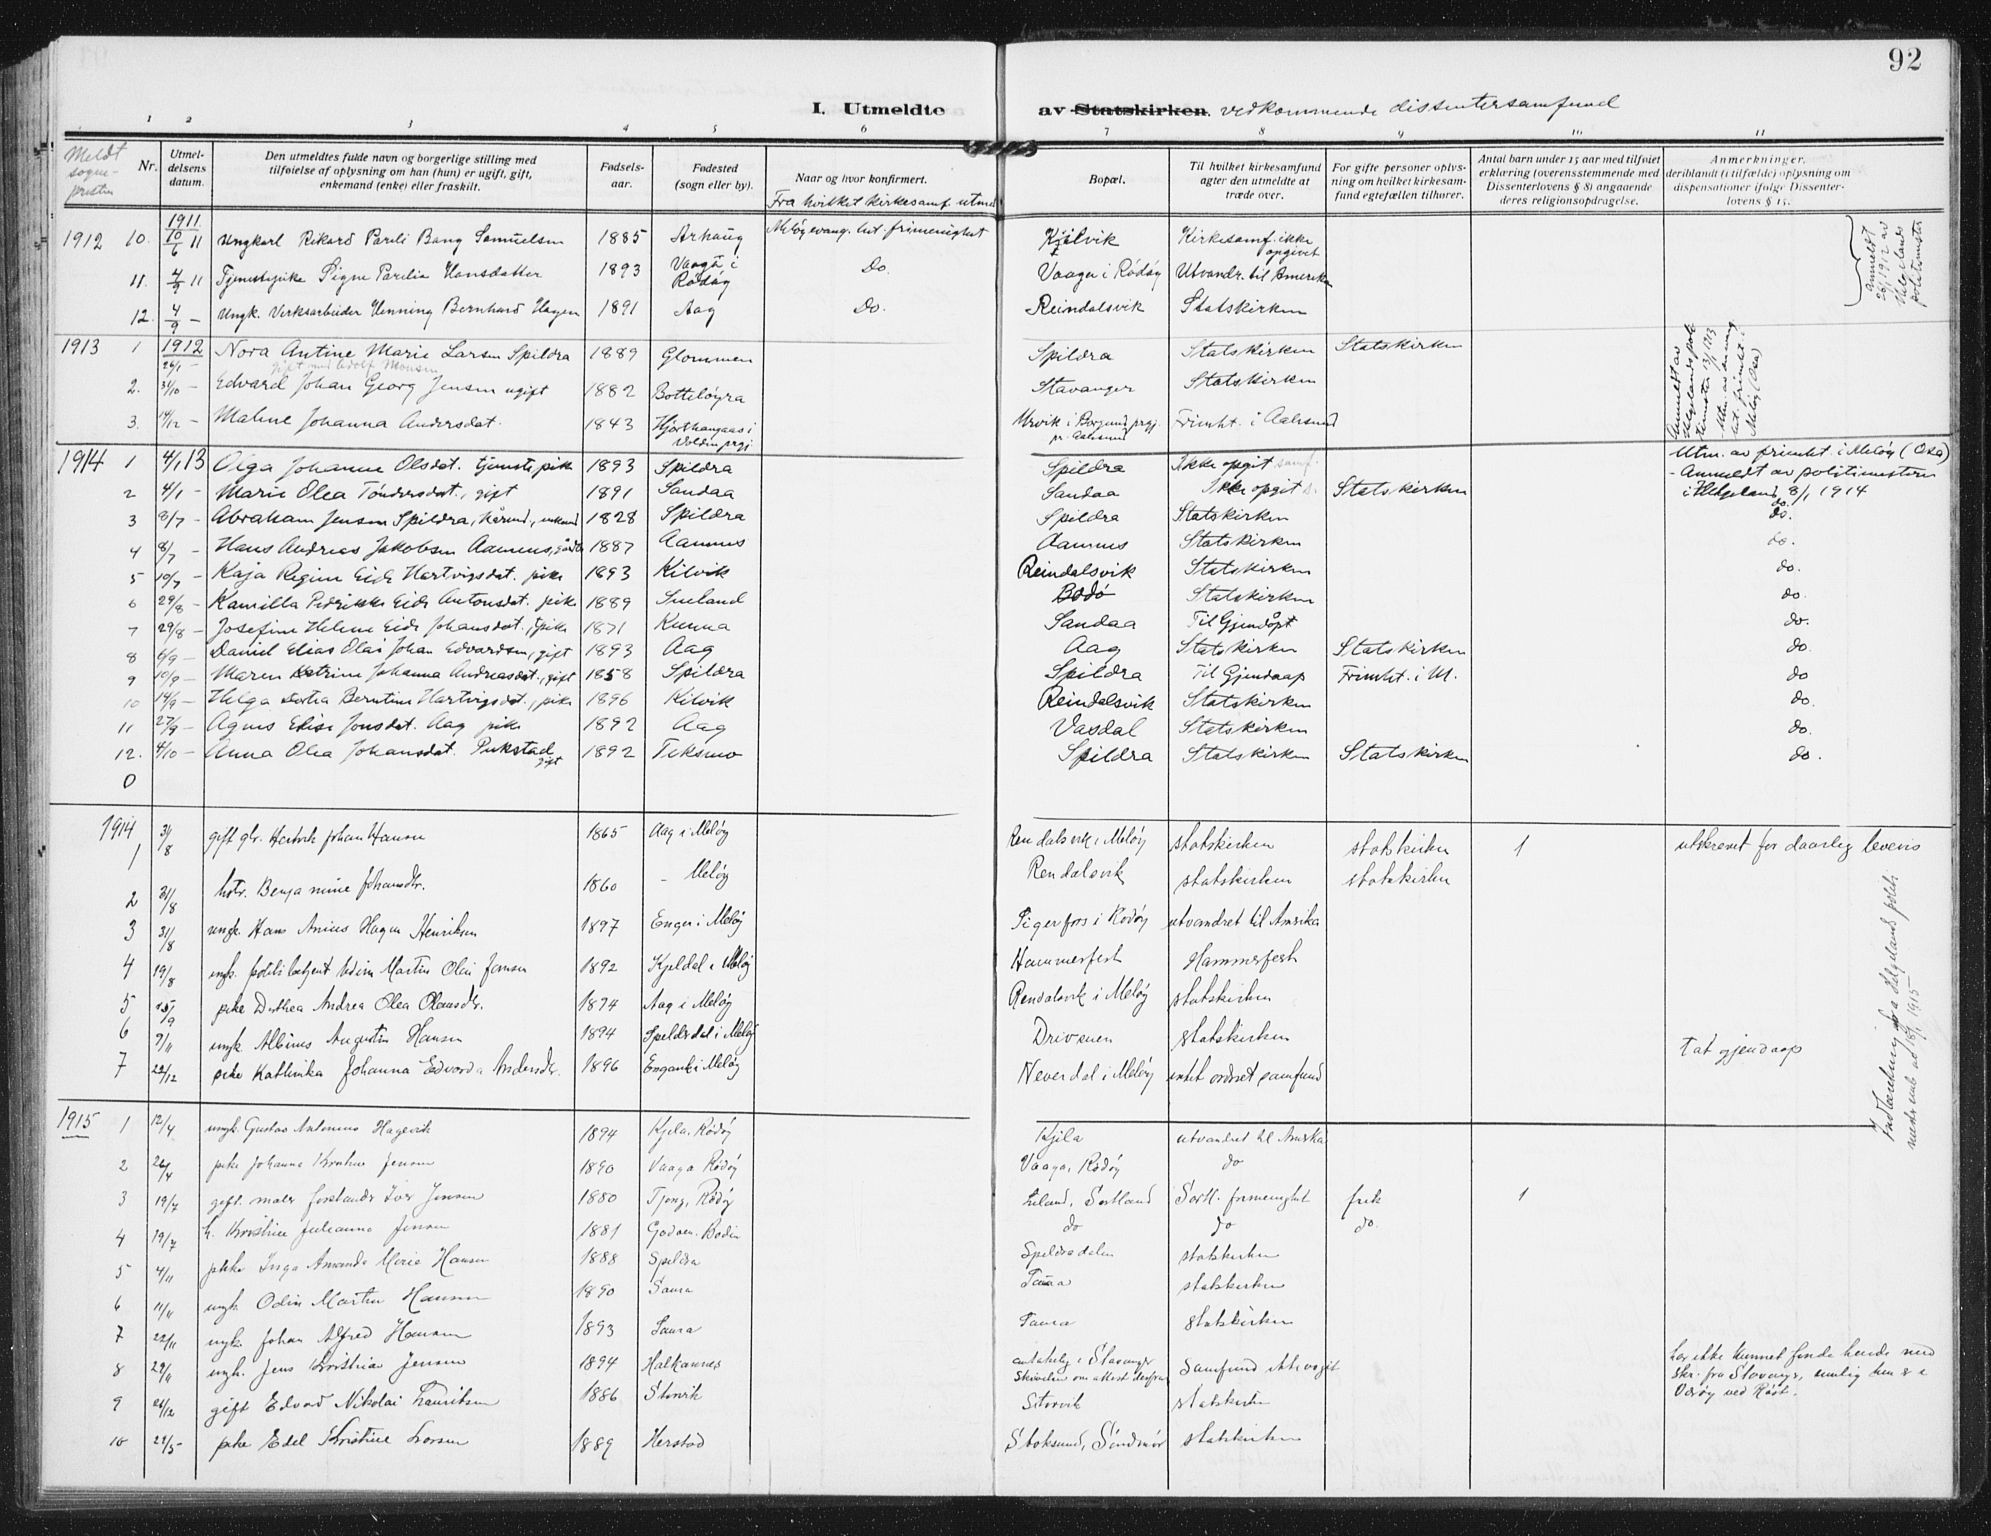 92
I. Utmeldte av Statskirken. vedkommende dissentersamfund
1 2 3 4 5 6 7 8 9 10 11
Meldt sogne-presten
Nr.
Utmel-delsens datum.
Den utmeldtes fulde navn og borgerlige stilling med tilføielse af oplysning om han (hun) er ugift, gift, enkemand (enke) eller fraskilt.
Fødsels-aar.
Fødested (sogn eller by).
Naar og hvor konfirmert.
Fra hvilket kirkesamf. utmel
Bopæl.
Til hvilket kirkesamfund agter den utmeldte at træde over.
For gifte personer oplys-ning om hvilket kirkesam-fund egtefællen tilhører.
Antal barn under 15 aar med tilføiet erklæring (overensstemmende med Dissenterlovens § 8) angaaende deres religionsopdragelse.
Anmerkninger, deriblandt (i tilfælde) oplysning om dispensationer ifølge Dissenter-lovens § 15.
1912 10. 1911 10/6 11 Ungkarl Rikard Pareli Bang Samuelsen 1885 Arhaug Meløy evang. lut. frimenighet Kjilvik Kirkesamf. ikke opgivet
11. 4/9 11 Tjenestepike Signe Parelia Hansdatter 1893 Vaaga i Rødøy Do. Vaaga i Rødøy Utvandr. til Amerika
12. 4/9 – Ungk. Verksarbeider Henning Bernhard Hagen 1891 Aag Do. Reindalsvik Statskirken
Anmeldt 26/1 1912 av Helgelands politimester
1913 1 1912 26/1 – Nora Antine Marie Larsen Spildra 1889 Glommen Spildra Statskirken Statskirken
gift med Adolf Monsen
2. 31/10 – Edvard Johan Georg Jensen ugift 1882 Bottøløyra Stavanger Statskirken
3. 14/12 – Maline Johanna Andersdat. 1843 Hjorthaugaas i Volden prgj. Urvik i Borgund prgj. pr. Aalesund Frimht. i Aalesund
Anmeldt av Helgelands politimester 13/1 1913
Meløy (Oxa)
1914 1 4/1 13 Olga Johanne Olsdat. tjenestepike 1893 Spildra Spildra Ikke opgit samf. Utm. av frimht i Meløy (Oxa)
2 4/1 – Marie Olea Tøndersdat., gift 1891 Sandaa Sandaa Ikke opgit Statskirken – Anmeldt av politimesteren i Helgeland 8/1 1914
3 8/7 – Abraham Jensen Spildra, kårmd., enkemd 1828 Spildra Spildra Statskirken do.
4 8/7 – Hans Andreas Jakobsen Aamnes, gårdbr 1887 Aamnes Aamnes Statskirken do.
5 10/7 – Kaja Regine Eide Hartvigsdat. pike 1893 Kilvik Reindalsvik Statskirken do.
6 29/8 – Kamilla Pedrikke Eide Antonsdat. pike 1889 Sneland Bodø Statskirken do.
7 29/8 – Josefine Helene Eide Johansdat., pike 1871 Kunna Sandaa Til Gjendøpt do.
8 6/9 – Daniel Elias Olai Johan Edvardsen, gift 1893 Aag Aag Statskirken Statskirken do.
9 10/9 – Maren Katrine Johanna Andreasdat., gift 1858 Spildra Spildra Til Gjendaap Frimht. i M. do
10 14/9 – Helga Dortia Berntine Hartvigsdat., pike 1896 Kilvik Reindalsvik Statskirken do.
11 27/9 – Agnes Elise Jonsdat. Aag pike 1892 Aag Vasdal Statskirken do.
12. 4/10 – Anna Olea Johansdat. Pukstad gift 1892 Teksmo Spildra Statskirken Statskirken do.
0
1914 1 31/8 gift gbr. Henrik Johan Hansen 1865 Aag i Meløy Rendalsvik i Meløy statskirken statskirken 1 utskrevet for daarlig levevis
2 31/8 hstr. Benjamine Johansdtr. 1860 – Meløy Rendalsvik statskirken statskirken
3 31/8 ungk. Hans Anius Hagen Henriksen 1897 Enger i Meløy Sigerfors i Rødøy utvandret til Amerika
4 19/8 ungk. politibetjent Edin Martin Olai Jensen 1892 Kjeldal i Meløy Hammerfest Hammerfest
5 25/9 pike Dorthea Andrea Olea Olausdtr. 1874 Aag i Meløy Rendalsvik i Meløy statskirken
6 9/11 ungk. Albinus Augustin Hansen 1894 Speldsdal i Meløy Drivsuen statskirken Tat gjendaap
7 22/12 pike Kathinka Johanna Edvarda Andersdtr. 1896 Engavik i Meløy Neverdal i Meløy intet ordnet samfund
Indberetning fra Helgelands politimesterembede 18/1 1915
1915 1 12/4 ungk. Gustav Antonius Hagevik 1894 Kjela, Rødøy Kjila utvandret til Amerika
2 26/4 pike Johanna Kristine Jensen 1890 Vaaga Rødøy Vaaga, Rødøy do
3 19/7 gift. maler forstander Ivar Jensen 1880 Tjong, Rødøy Leland, Sortland Sortl. frimenighet frik 1
4 19/7 h. Kristine Julianna Jensen 1881 Godøen. Bodin do do do.
5 4/11 pike Inga Amanda Marie Hansen 1888 Speldra Speldradalen statskirken
6 11/11 ungk. Odin Martin Hansen 1890 Saura Saura statskirken
7 22/11 ungk. Johan Alfred Hansen 1893 Saura Saura statskirken
8 29/11 ungk. Jens Kristian Jensen 1894 Halkannes antakelig i Stavanger Skrevelse om attest derfra Samfund ikke opgit har ikke kunnet finde hende med skr. fra Stavanger, nemlig
9 24/12 gift Edvard Nikolai Lauritsen 1886 Storvik Storvik statskirken
10 22/5 pike Edel Kristine Larsen 1889 Herstad Stoksund, Søndmør statskirken